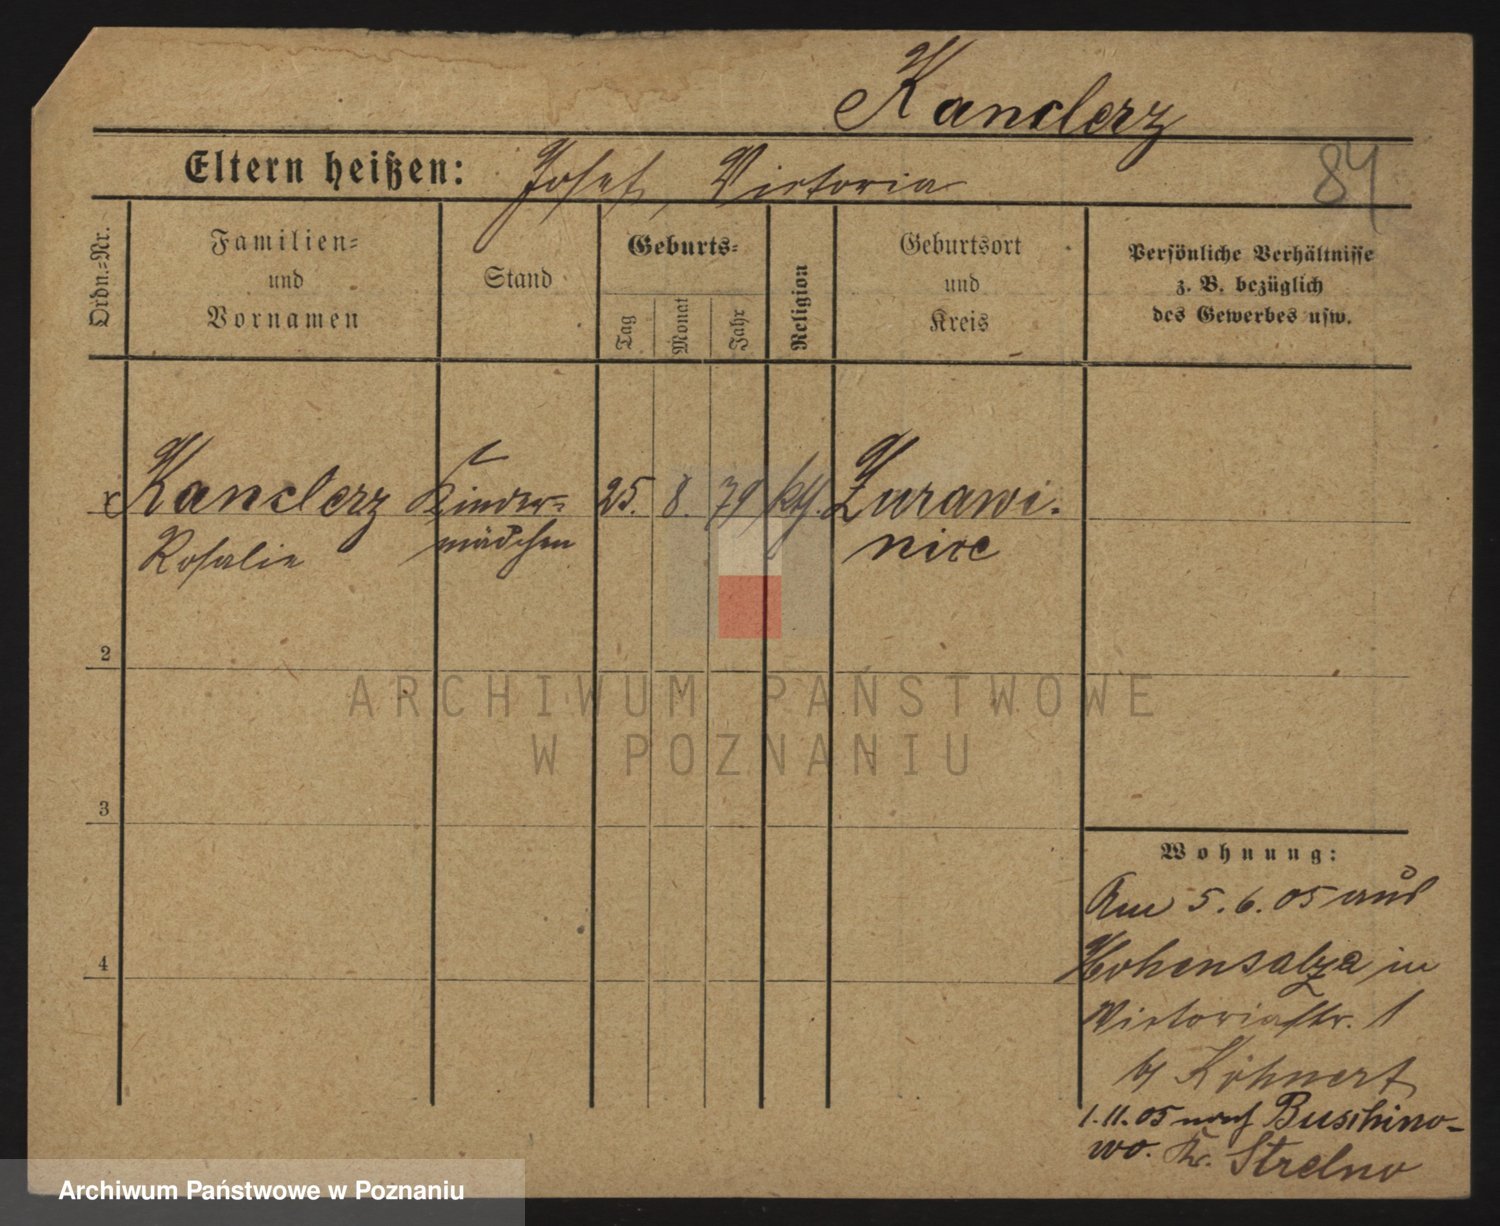 Kanclerz
84
Eltern heißen: Josef, Victoria
Ordn.-Nr.
Familien-
und
Vornamen
Stand
Geburts-
Tag
Monat
Jahr
Religion
Geburtsort
und
Kreis
Persönliche Verhältnisse
z. B. bezüglich
des Gewerbes usw.
Kanclerz Kinder- 25. 8. 79 kth. Zurawi-
Rosalie mädchen niec
2
ARCHIWUM PAŃSTWOWE
W POZNANIU
3
4
Wohnung:
Am 5.6.05 aus
Hohensalza in
Victoriastr. 1
b/ Köhnert
1.11.05 nach Buschino-
wo. Kr. Strelno
Archiwum Państwowe w Poznaniu